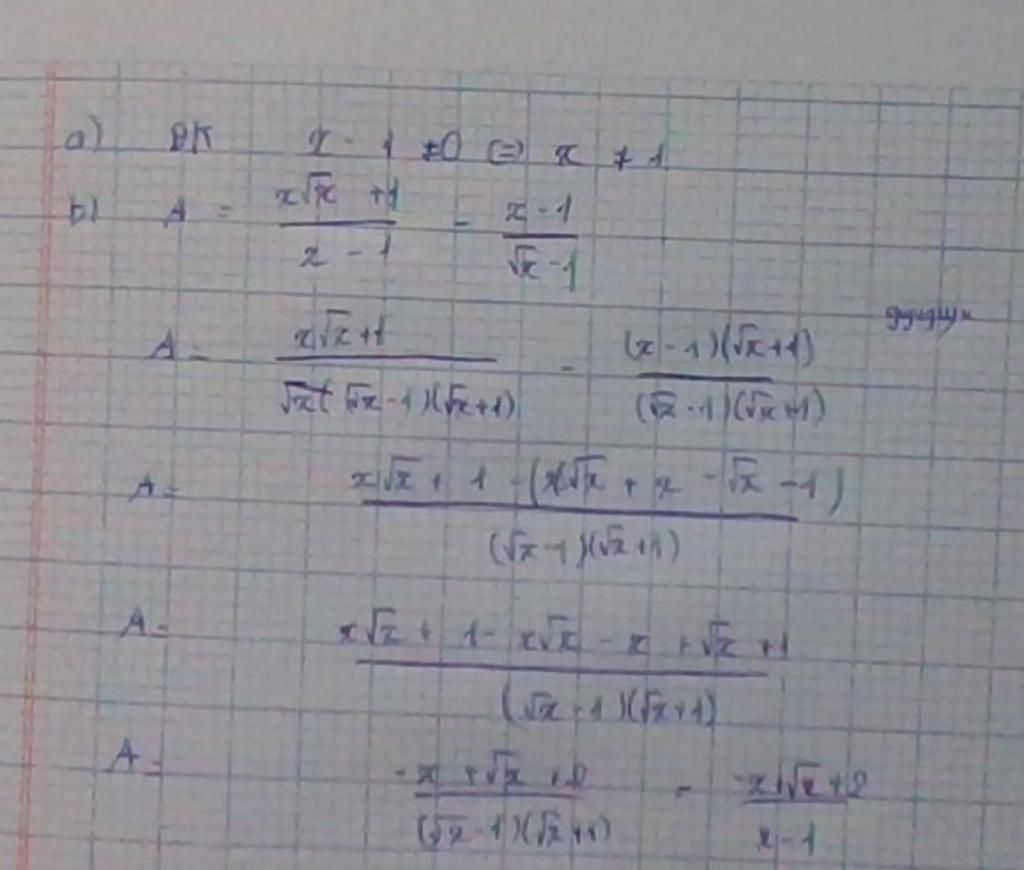 a) ĐK x - 1 ≠ 0 (=) x ≠ 1
b) A = (x√x + 1)/(x - 1) - (x - 1)/(√x - 1)
A = (x√x + 1)/((√x - 1)(√x + 1)) - ((x - 1)(√x + 1))/((√x - 1)(√x + 1))
A = (x√x + 1 - (x√x + x - √x - 1))/((√x - 1)(√x + 1))
A = (x√x + 1 - x√x - x + √x + 1)/((√x - 1)(√x + 1))
A = (-x + √x + 2)/((√x - 1)(√x + 1)) = (-x + √x + 2)/(x - 1)